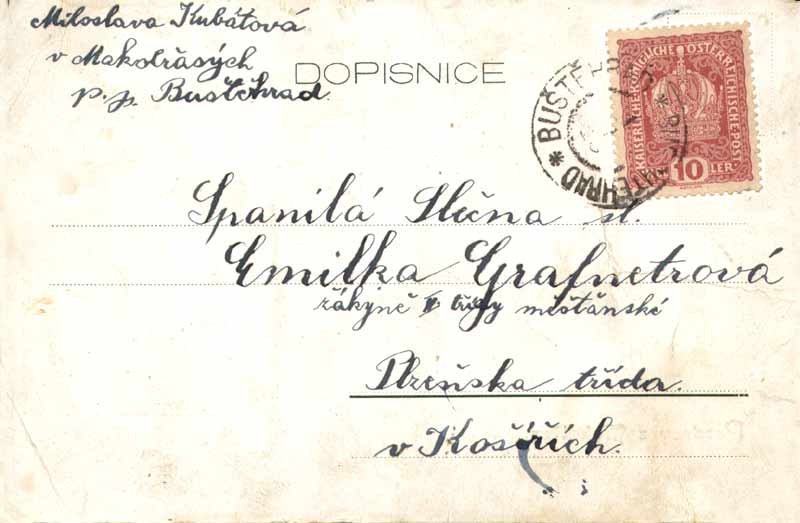 Miloslava Kubátová
v Makotřasých
p. p. Buštěhrad.
DOPISNICE
BUŠTĚHRAD
KAISERLICHE KÖNIGLICHE ÖSTERREICHISCHE POST
10 HELLER
Spanilá Slečna sl.
Emilka Grafnetrová
žákyně II třídy měšťanské
Plzeňská třída.
v Košířích.